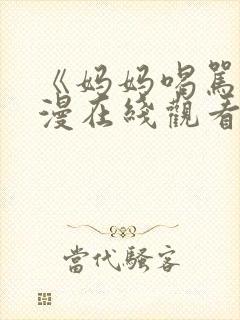 《妈妈喝駡
漫在綫觀看
當代騷客